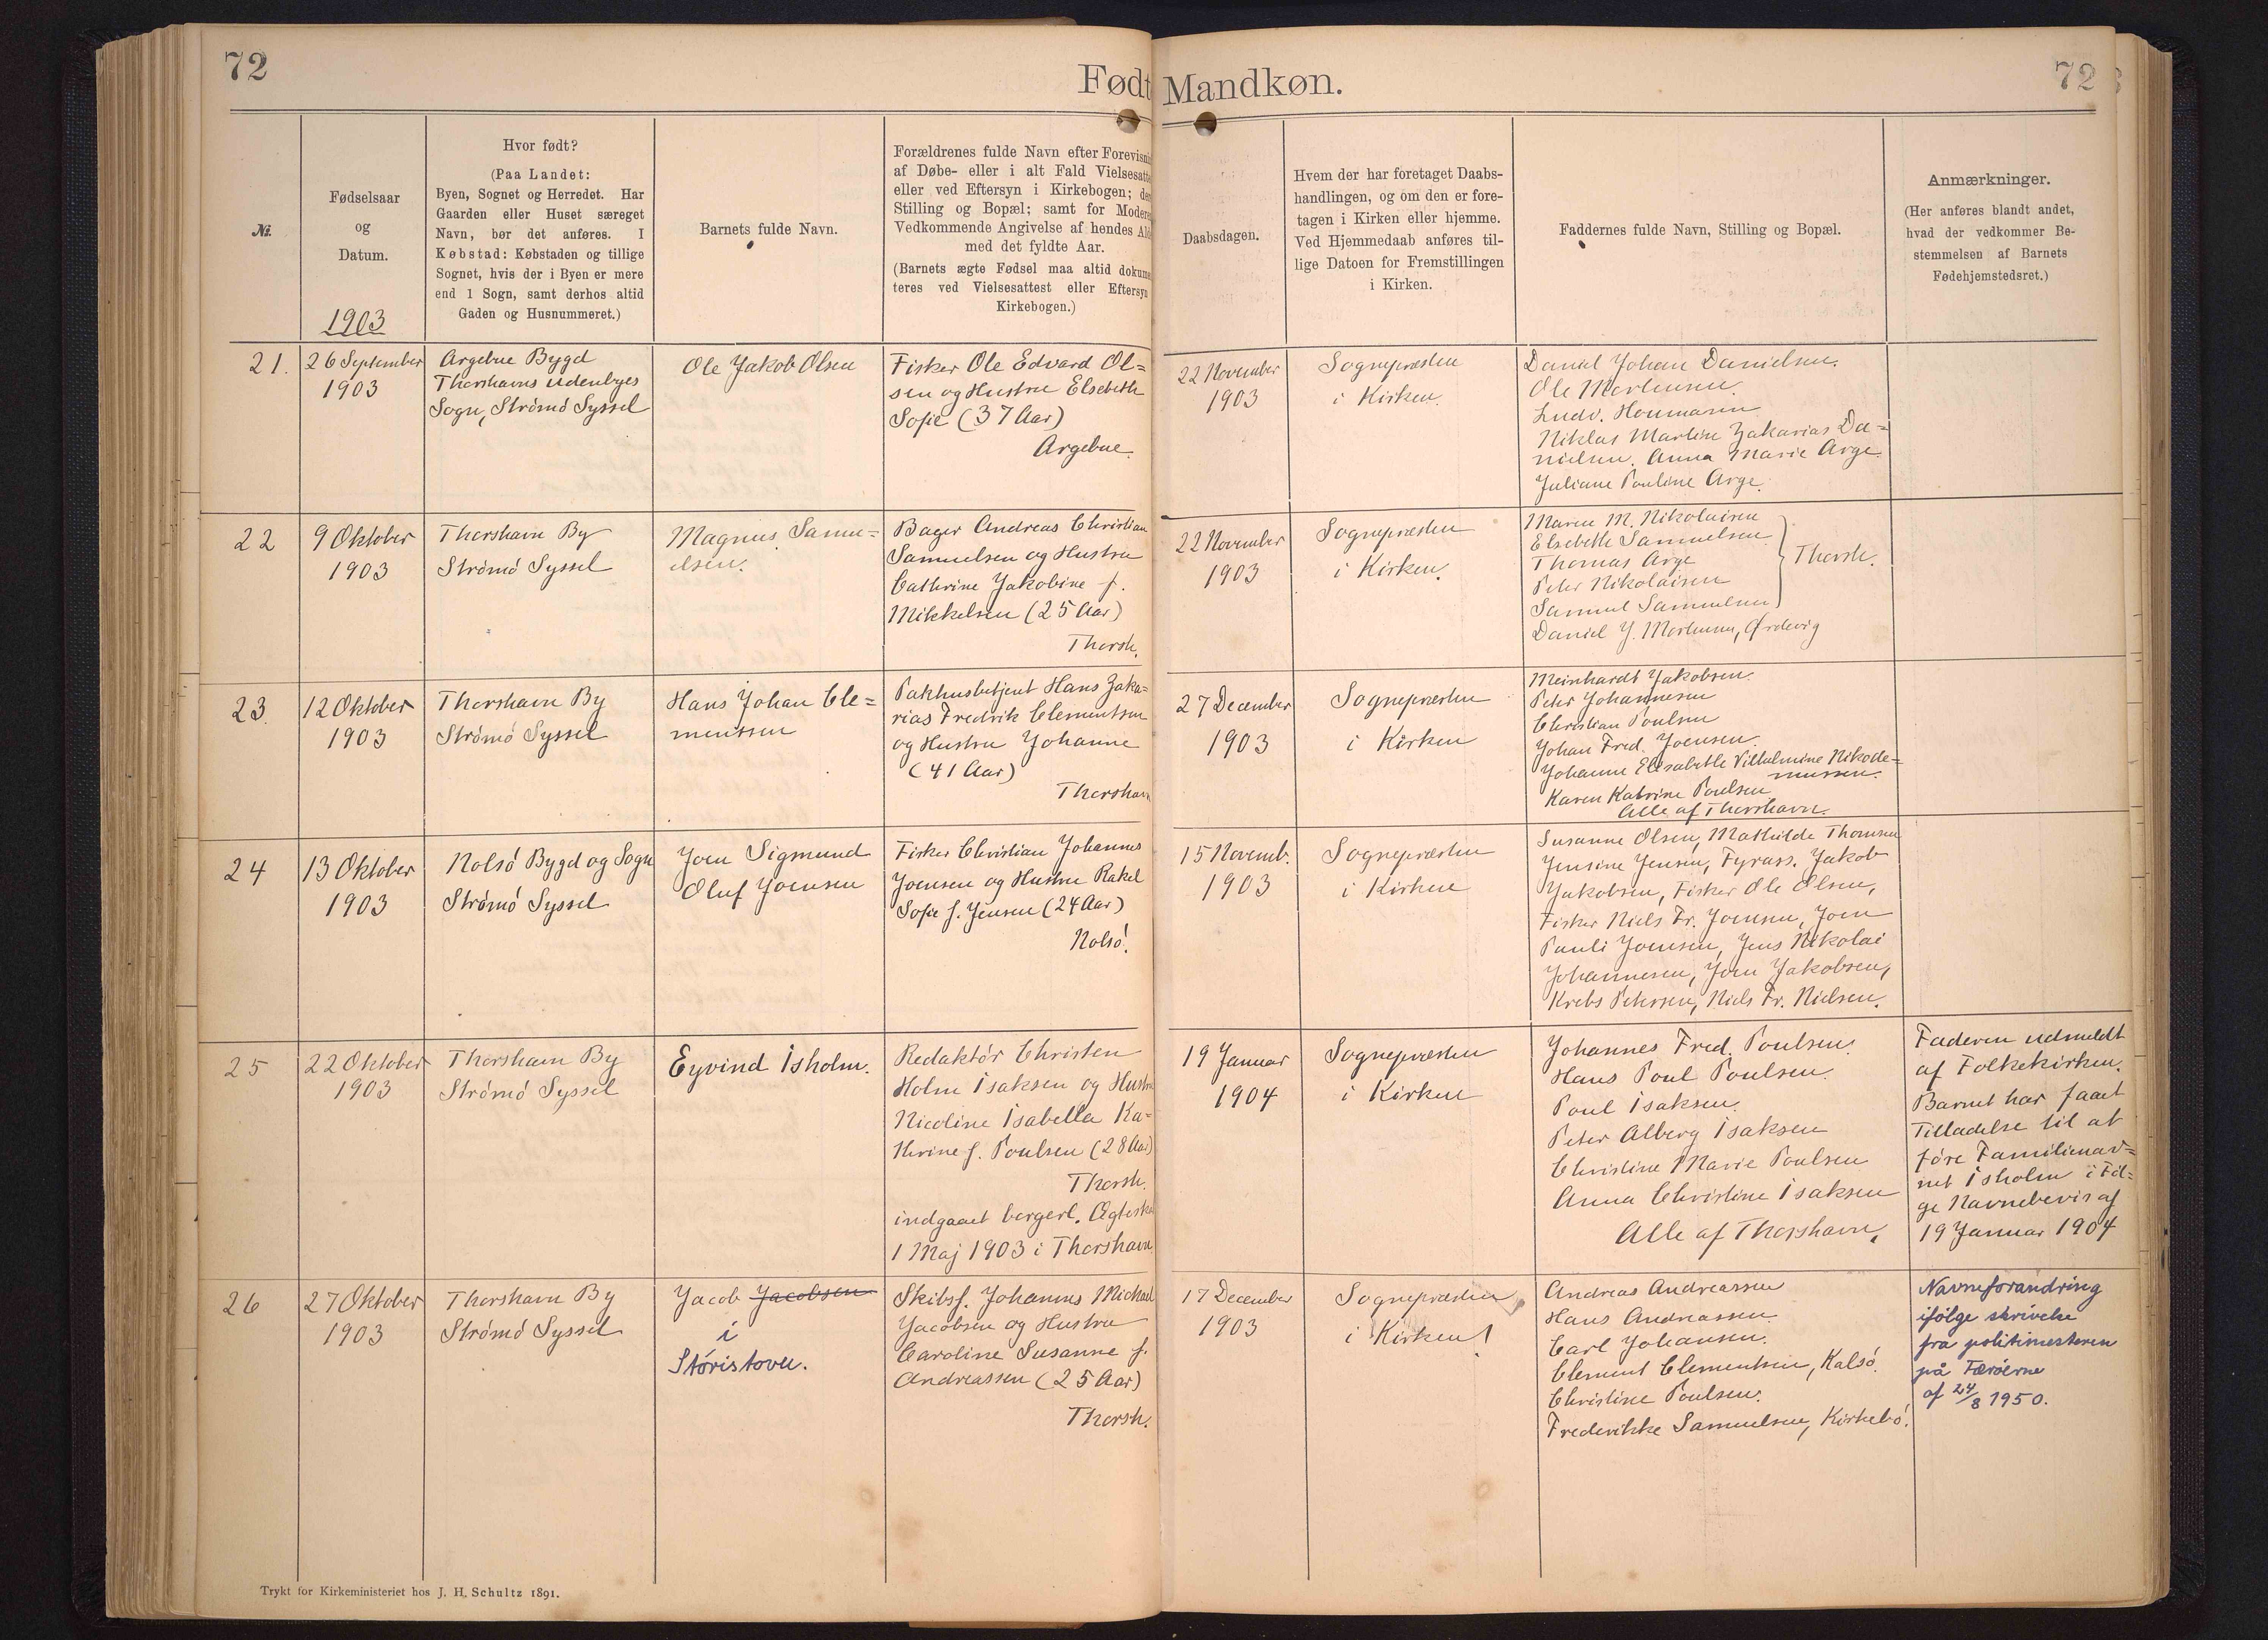 72
Født
Mandkøn.
72
№
Fødselsaar
og
Datum.
1903
Hvor født?
(Paa Landet:
Byen, Sognet og Herredet. Har
Gaarden eller Huset særeget
Navn, bør det anføres. I
Købstad: Købstaden og tillige
Sognet, hvis der i Byen er mere
end 1 Sogn, samt derhos altid
Gaden og Husnummeret.)
Barnets fulde Navn.
Forældrenes fulde Navn efter Forevisni
af Døbe- eller i alt Fald Vielsesatte
eller ved Eftersyn i Kirkebogen; der
Stilling og Bopæl; samt for Modere
Vedkommende Angivelse af hendes Ald
med det fyldte Aar.
(Barnets ægte Fødsel maa altid dokume
teres ved Vielsesattest eller Eftersyn
Kirkebogen.)
Daabsdagen.
Hvem der har foretaget Daabs-
handlingen, og om den er fore-
tagen i Kirken eller hjemme.
Ved Hjemmedaab anføres til-
lige Datoen for Fremstillingen
i Kirken.
Faddernes fulde Navn, Stilling og Bopæl.
Anmærkninger.
(Her anføres blandt andet,
hvad der vedkommer Be-
stemmelsen af Barnets
Fødehjemstedsret.)
21.
26 September
1903
Argebue Bygd
Thorshavns udenbyes
Sogn, Strömö Syssel
Ole Jakob Olsen
Fisker Ole Edvard Ol=
sen og Hustru Elsebeth
Sofie (37 Aar)
Argebue.
22 November
1903
Sognepræsten
i Kirken.
Daniel Johan Danielsen.
Ole Mortensen.
Ludv. Houmann
Niklas Martin Zakarias Da=
nielsen. Anna Marie Arge.
Juliane Pouline Arge.
22
9 Oktober
1903
Thorshavn By
Strömö Syssel
Magnus Samu=
elsen.
Bager Andreas Christian
Samuelsen og Hustru
Cathrine Jakobine f.
Mikkelsen (25 Aar)
Thorsh.
22 November
1903
Sognepræsten
i Kirken.
Maren M. Nikolaisen
Elsebeth Samuelsen
Thomas Arge
Peter Nikolaisen
Samuel Samuelsen
Thorsh.
Daniel J. Mortensen, Ördevig
23.
12 Oktober
1903
Thorshavn By
Strömö Syssel
Hans Johan Cle=
mentsen
Pakhusbetjent Hans Zaka=
rias Fredrik Clementsen
og Hustru Johanne
(41 Aar)
Thorshavn
27 December
1903
Sognepræsten
i Kirken
Meinhardt Jakobsen.
Peter Johannesen
Christian Poulsen
Johan Fred. Joensen.
Johanne Elisabeth Vilhelmine Nikode=
mussen.
Karen Katrine Poulsen
Alle af Thorshavn.
24
13 Oktober
1903
Nolsö Bygd og Sogn
Strömö Syssel
Joen Sigmund
Oluf Joensen
Fisker Christian Johannes
Joensen og Hustru Rakel
Sofie f. Jensen (24 Aar)
Nolsö.
15 Novemb.
1903
Sognepræsten
i Kirken
Susanne Olsen, Mathilde Thomsen
Jensine Jensen, Fyrass. Jakob
Jakobsen, Fisker Ole Olsen,
Fisker Niels Fr. Joensen, Joen
Pauli Joensen, Jens Nikolai
Johannesen, Joen Jakobsen,
Krebs Petersen, Niels Fr. Nielsen.
25
22 Oktober
1903
Thorshavn By
Strömö Syssel
Eyvind Isholm.
Redaktör Christen
Holm Isaksen og Hustru
Nicoline Isabella Ka=
thrine f. Poulsen (28 Aar)
Thorsh.
indgaaet borgerl. Ægtesk
1 Maj 1903 i Thorshavn
19 Januar
1904
Sognepræsten
i Kirken
Johannes Fred. Poulsen.
Hans Poul Poulsen.
Poul Isaksen.
Peter Alberg Isaksen
Christine Marie Poulsen
Anna Christine Isaksen
Alle af Thorshavn.
Faderen udmeldt
af Folkekirken.
Barnet har faaet
Tilladelse til at
före Familienav=
net Isholm i Föl=
ge Navnebevis af
19 Januar 1904
26
27 Oktober
1903
Thorshavn By
Strömö Syssel
Jacob Jacobsen
i
Stóristovu.
Skibsf. Johannes Michael
Jacobsen og Hustru
Caroline Susanne f.
Andreassen (25 Aar)
Thorsh.
17 December
1903
Sognepræsten
i Kirken
Andreas Andreassen
Hans Andreassen.
Carl Johansen.
Clement Clementsen, Kalsö.
Christine Poulsen.
Frederikke Samuelsen, Kirkebö.
Navneforandring
ifölge skrivelse
fra politimesteren
på Færöerne
af 24/8 1950.
Trykt for Kirkeministeriet hos J. H. Schultz 1891.